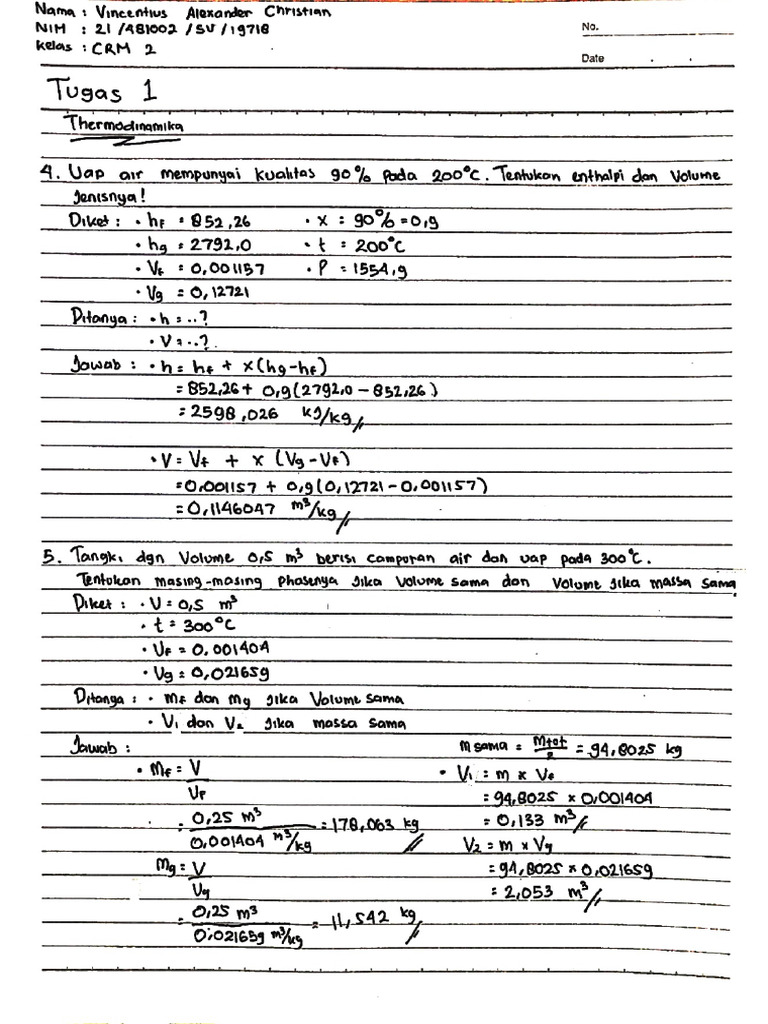 Nama : Vincentius Alexander Christian
NIM : 21/481002/SV/19718
Kelas : CRM 2
No.
Date
Tugas 1
Thermodinamika
4. Uap air mempunyai kualitas 90% pada 200°C. Tentukan enthalpi dan Volume
Jenisnya!
Diket : • hf = 852,26 • x = 90% = 0,9
• hg = 2792,0 • t = 200°C
• Vf = 0,001157 • P = 1554,9
• Vg = 0,12721
Ditanya : • h = ..?
• V = ..?
Jawab : • h = hf + x(hg-hf)
= 852,26 + 0,9(2792,0 - 852,26)
= 2598,026 kJ/kg //
• V = Vf + x (Vg-Vf)
= 0,001157 + 0,9(0,12721 - 0,001157)
= 0,1146047 m³/kg //
5. Tangki dgn Volume 0,5 m³ berisi campuran air dan uap pada 300°C.
Tentukan masing-masing phasenya jika Volume sama dan Volume jika massa sama
Diket : • V = 0,5 m³
• t = 300°C
• Vf = 0,001404
• Vg = 0,021659
Ditanya : • mf dan mg jika Volume sama
• V1 dan V2 jika massa sama
Jawab :
• Mf = V/Vf
= 0,25 m³ / 0,001404 m³/kg = 178,063 kg //
Mg = V/Vg
= 0,25 m³ / 0,021659 m³/kg = 11,542 kg //
m sama = Mtot/2 = 94,8025 kg
• V1 = m x Vf
= 94,8025 x 0,001404
= 0,133 m³ //
V2 = m x Vg
= 94,8025 x 0,021659
= 2,053 m³ //